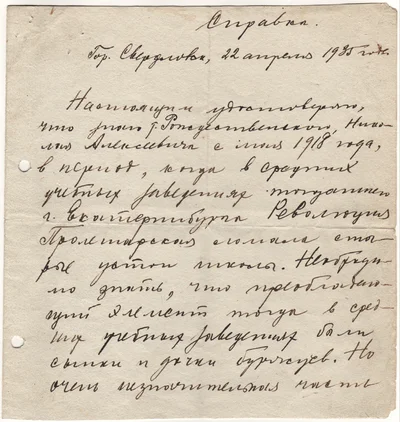 Справка.
Гор. Свердловск, 22 апреля 1935 года.
Настоящим удостоверяю,
что знаю т. Рождественского, Нико-
лая Алексеевича с мая 1918 года,
в период, когда в средних
учебных заведениях тогдашнего
г. Екатеринбурга Революция
Пролетарская ломала ста-
рые устои школы. Необходи-
мо знать, что преобладаю-
щий элемент тогда в сред-
них учебных заведениях были
сынки и дочки буржуев. Но
очень незначительная часть